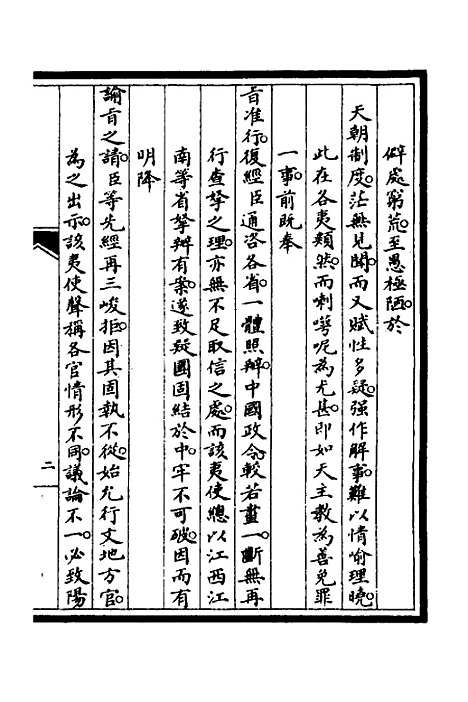 僻處窮荒。至愚極陋。於
天朝制度。茫無見聞。而又賦性多疑。強作解事。難以情喻理曉。
此在各夷類然。而喇嘮呢為尤甚。即如天主教為善免罪
一事。前既奉
旨准行。復經臣通咨各省。一體照辦。中國政令。較若畫一。斷無再
行查拏之理。亦無不足取信之處。而該夷使總以江西江
南等省拏辦有案。遂致疑團固結於中。牢不可破。因而有
明降
諭旨之請。臣等先經再三峻拒。因其固執不從。始允行文地方官。
為之出示。該夷使聲稱各官情形不同。議論不一。必致陽
二